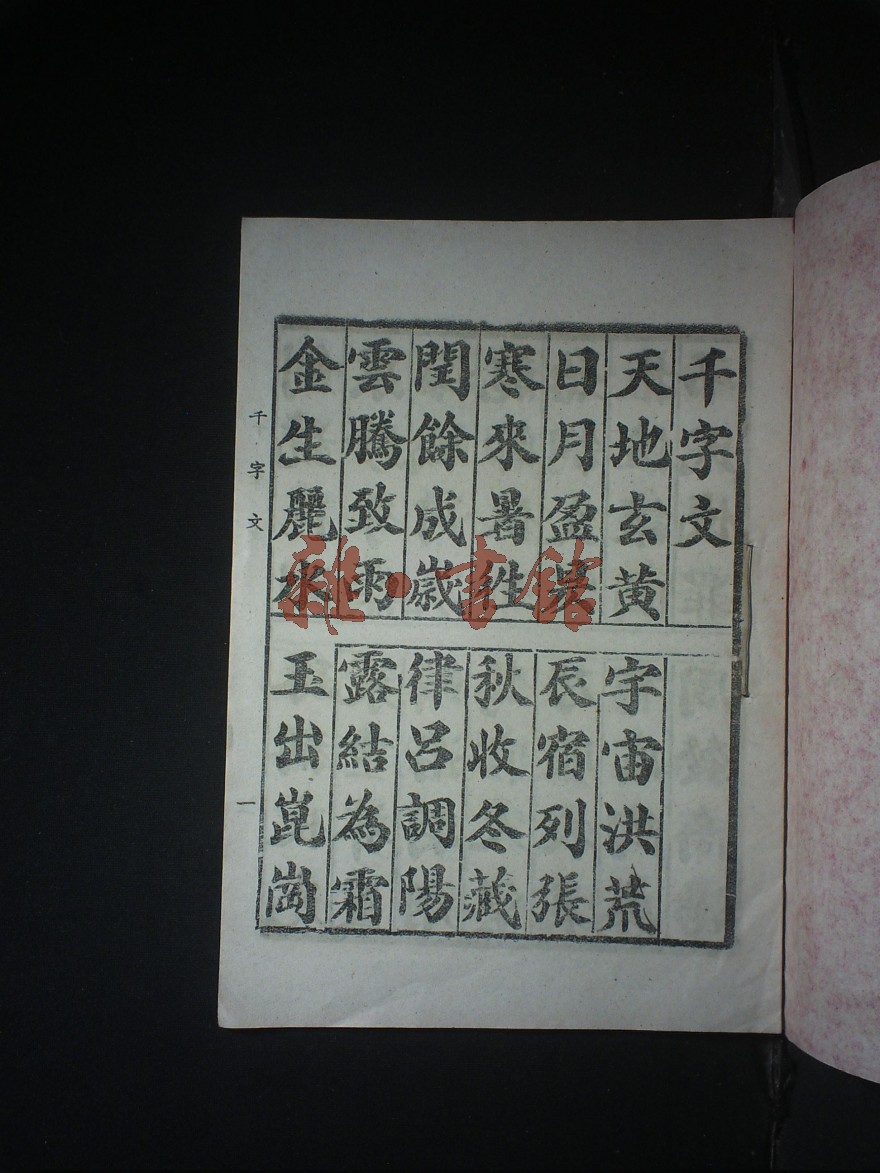 千字文
天地玄黄 宇宙洪荒
日月盈昃 辰宿列張
寒來暑往 秋收冬藏
閏餘成歲 律呂調陽
雲騰致雨 露結為霜
金生麗水 玉出崑崗
千字文 一
雜·書館